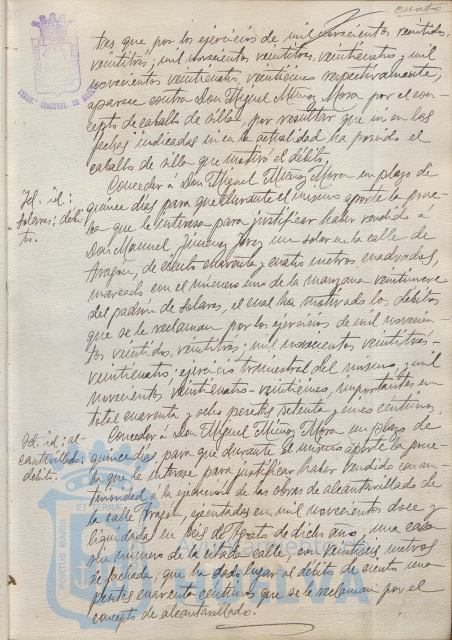 cuatro
tas que por los ejercicios de mil novecientos veintidos,
veintitres; mil novecientos veintitres, veinticuatro y mil
novecientos veinticuatro, veinticinco respectivamente,
aparece contra Don Miguel Muñoz Mora por el con-
cepto de caballo de silla, por resultar que ni en las
fechas indicadas ni en la actualidad ha poseido el
caballo de silla que motivó el débito.
Id. id:
solares; débi-
tos.
Conceder á Don Miguel Muñoz Mora un plazo de
quince dias para que durante el mismo aporte la prue-
ba que le interesa para justificar haber vendido a
Don Manuel Jimenez un solar en la calle de
Aragón, de ciento cuarenta y cuatro metros cuadrados,
marcado con el número uno de la manzana veintinueve
del padrón de solares, el cual ha motivado los débitos
que se le reclaman por los ejercicios de mil novecien-
tos veintidos, veintitres; mil novecientos veintitres-
veinticuatro; ejercicio trimestral del mismo y mil
novecientos veinticuatro-veinticinco, importantes en
total cuarenta y ocho pesetas setenta y cinco céntimos.
Id. id; al-
cantarillado;
débito.
Conceder a Don Miguel Muñoz Mora un plazo de
quince dias para que durante el mismo aporte la prue-
ba que le interese para justificar haber vendido con an-
terioridad á la ejecucion de las obras de alcantarillado de
la calle Aragon, ejecutadas en mil novecientos doce y
liquidadas en seis de Agosto de dicho año, una casa
sin número de la citada calle, con veintiseis metros
de fachada, que ha dado lugar al débito de ciento una
pesetas cuarenta céntimos que se le reclaman por el
concepto de alcantarillado.
PORTUS MARIS
HUELVA